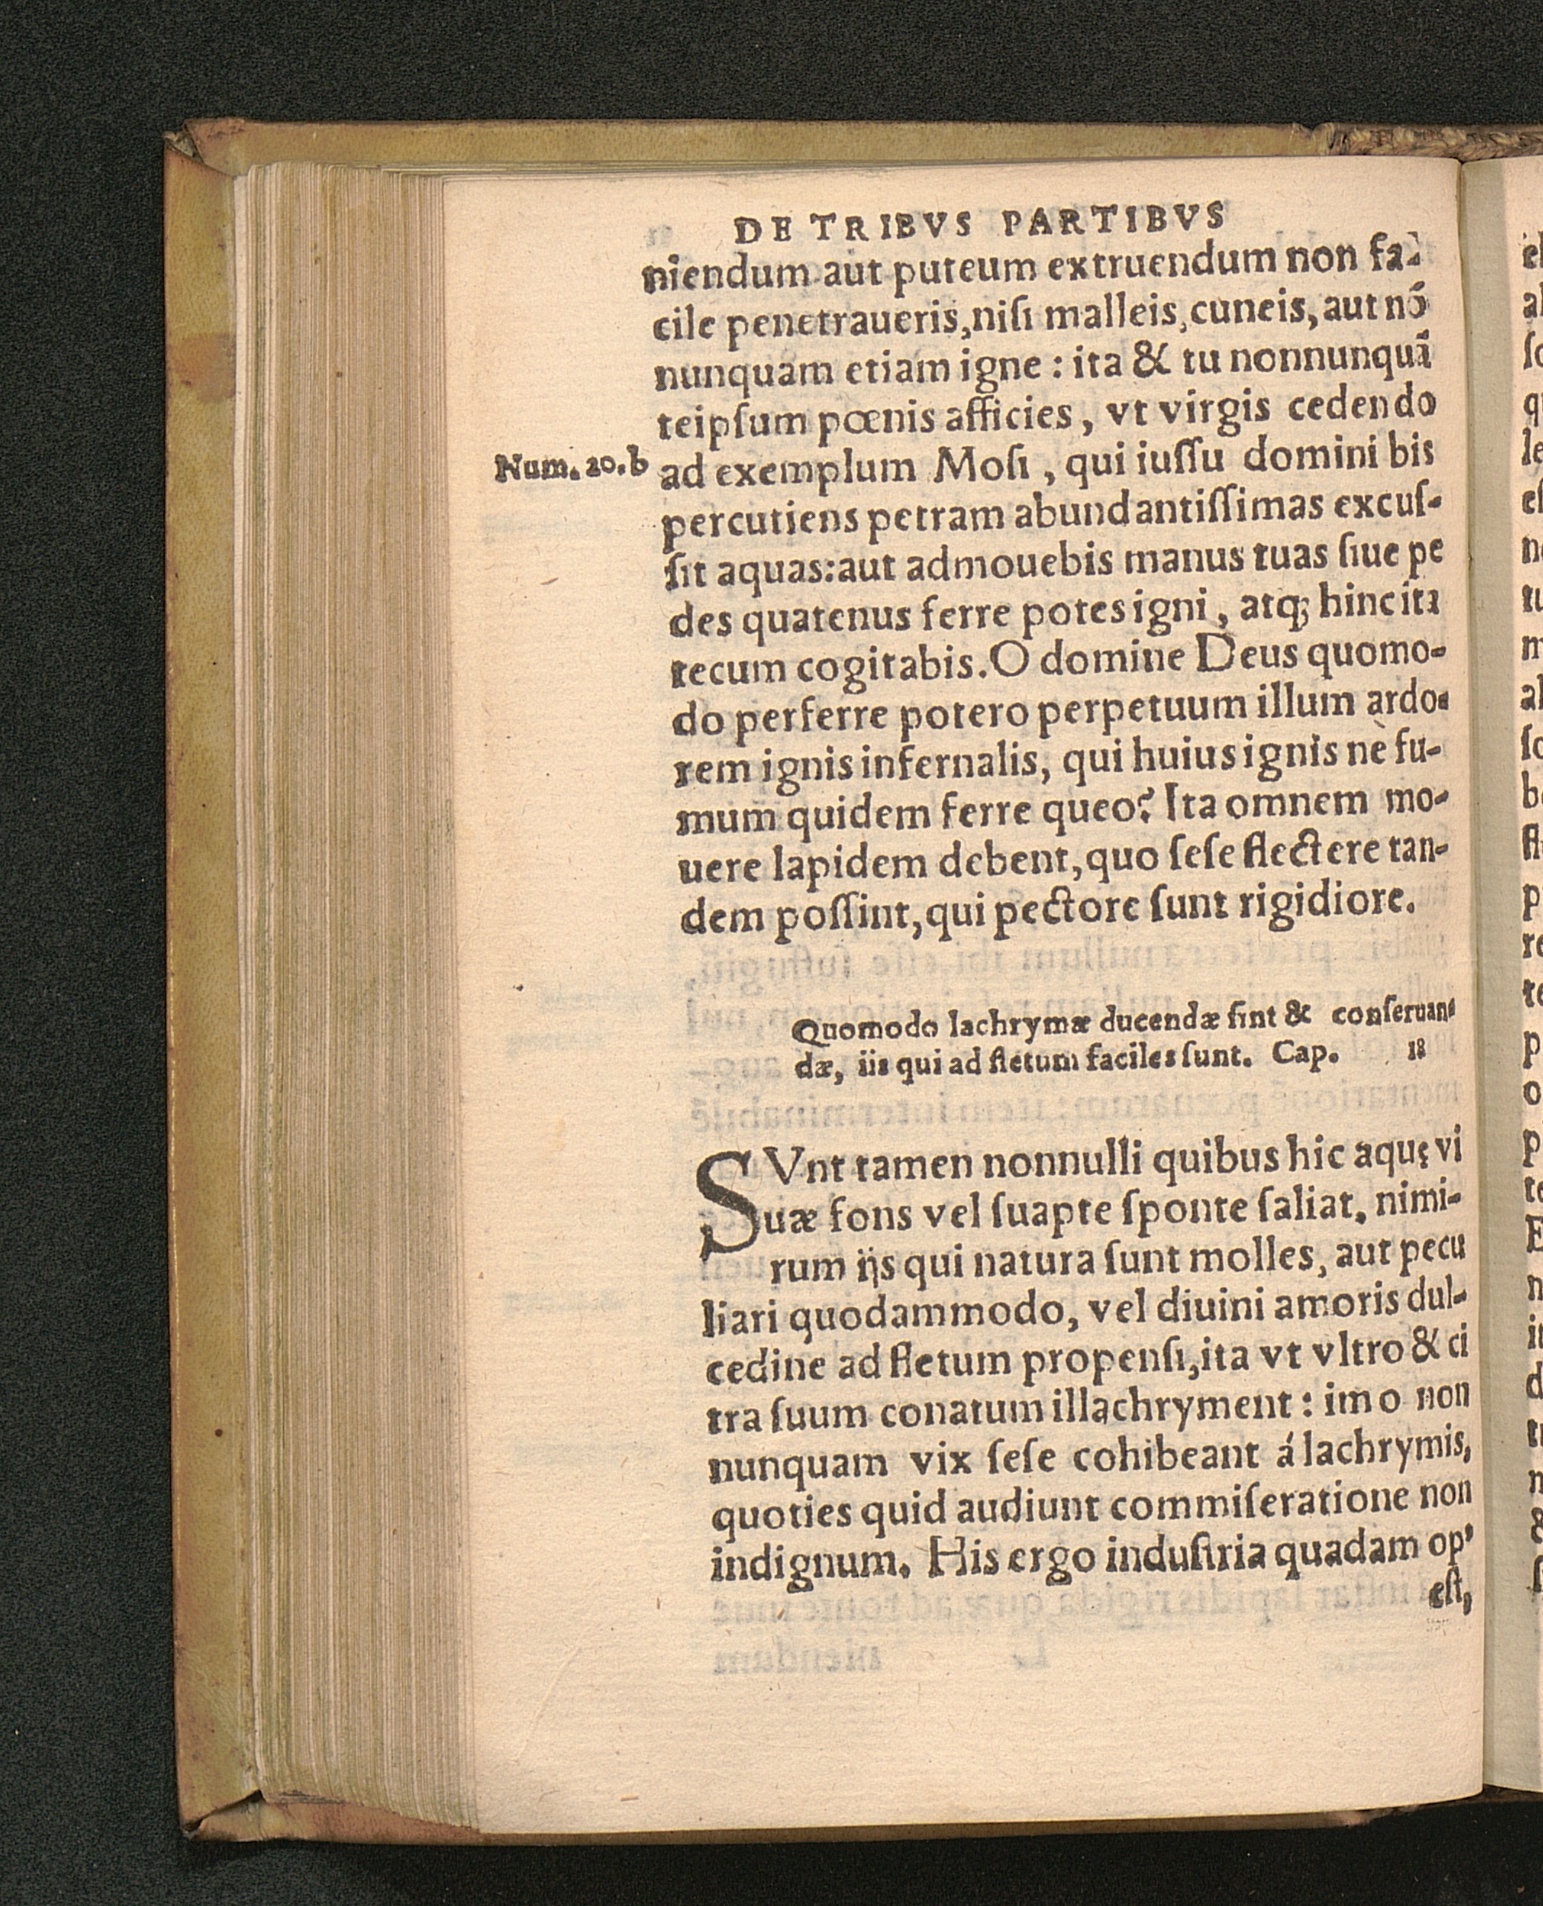 DE TRIBVS PARTIBVS
niendum aut puteum extruendum non fa-
cile penetraueris, niſi malleis, cuneis, aut nō
nunquam etiam igne: ita & tu nonnunquā
teipſum pœnis afficies, vt virgis cedendo
Num. 20. b
ad exemplum Moſi, qui iuſſu domini bis
percutiens petram abundantiſſimas excuſ-
ſit aquas: aut admouebis manus tuas ſiue pe
des quatenus ferre potes igni, atq; hinc ita
tecum cogitabis. O domine Deus quomo-
do perferre potero perpetuum illum ardo-
rem ignis infernalis, qui huius ignis nè fu-
mum quidem ferre queo? Ita omnem mo-
uere lapidem debent, quo ſeſe flectere tan-
dem poſſint, qui pectore ſunt rigidiore.
Quomodo lachrymæ ducendæ ſint & conſeruan-
dæ, iis qui ad fletum faciles ſunt. Cap. 18
SVnt tamen nonnulli quibus hic aquę vi
uæ fons vel ſuapte ſponte ſaliat, nimi-
rum ijs qui natura ſunt molles, aut pecu
liari quodammodo, vel diuini amoris dul-
cedine ad fletum propenſi, ita vt vltro & ci
tra ſuum conatum illachryment: imo non
nunquam vix ſeſe cohibeant á lachrymis,
quoties quid audiunt commiſeratione non
indignum. His ergo induſtria quadam op'
eſt,